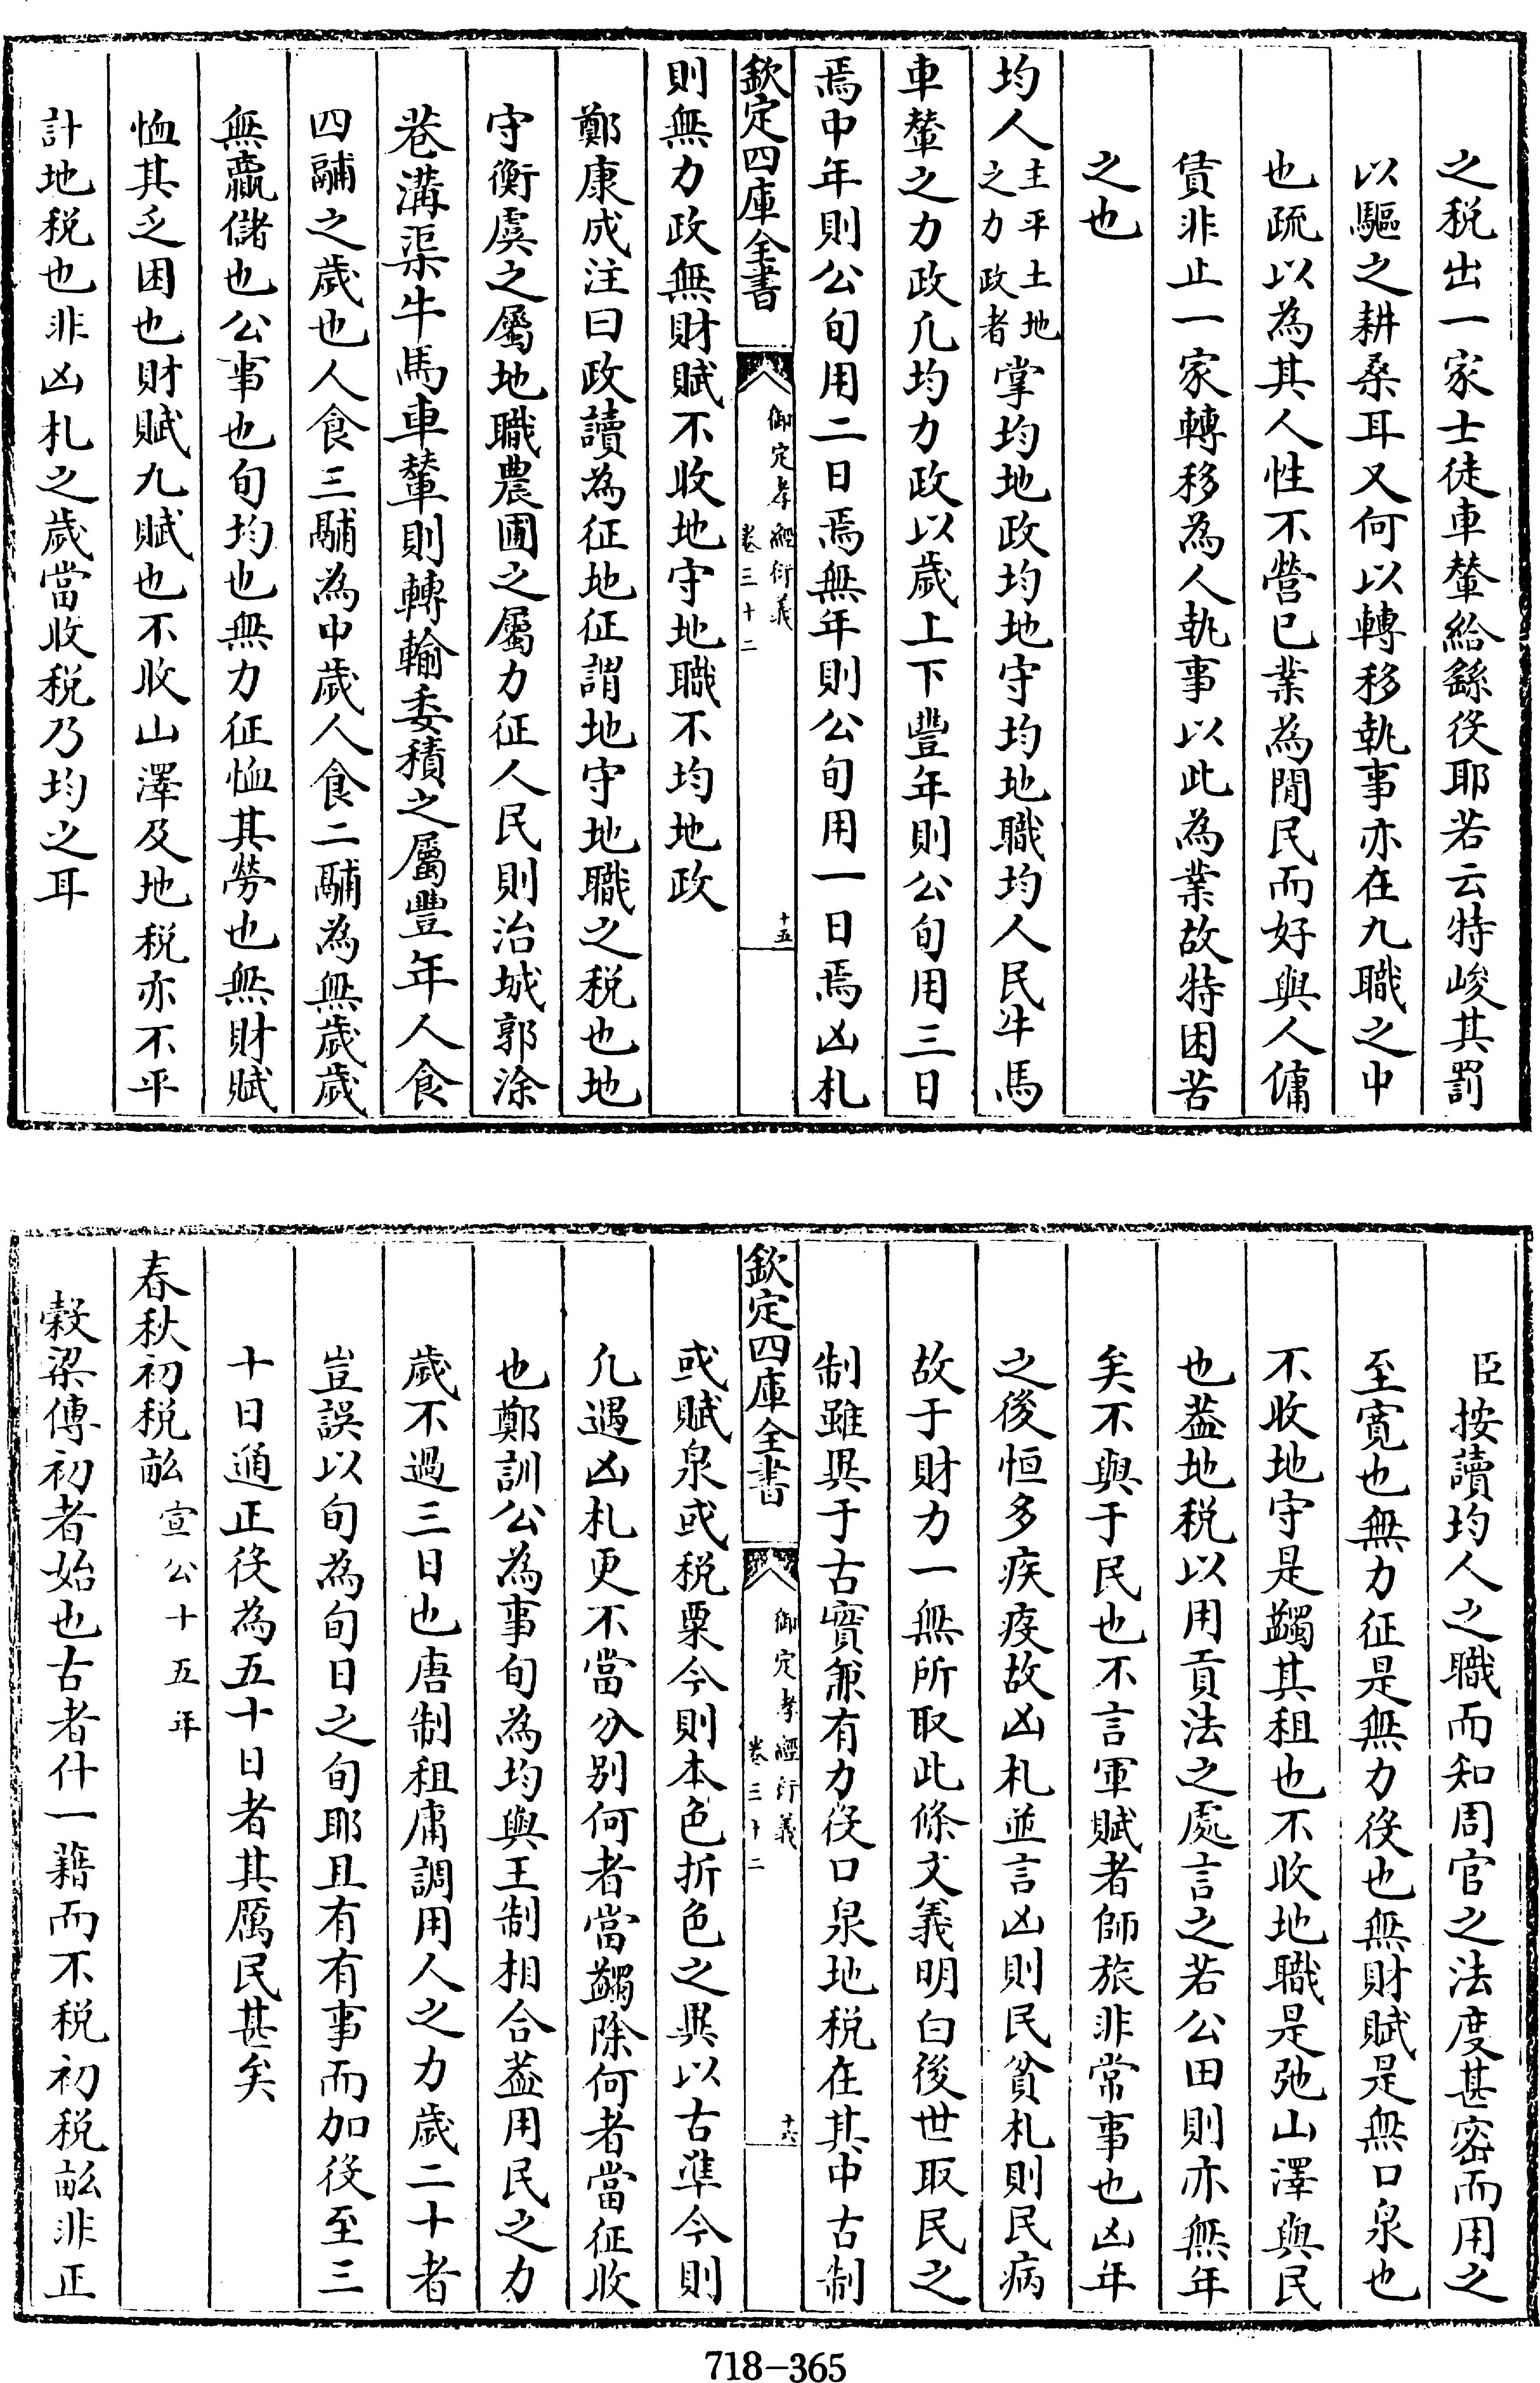 之税出一家士徒車輦給繇役耶若云特峻其罰
以驅之耕桑耳又何以轉移執事亦在九職之中
也疏以為其人性不營已業為閒民而好與人傭
賃非止一家轉移為人執事以此為業故特困苦
之也
均人主平土地之力政者掌均地政均地守均地職均人民牛馬
車輦之力政凡均力政以歲上下豐年則公旬用三日
焉中年則公旬用二日焉無年則公旬用一日焉凶札
欽定四庫全書
御定孝經衍義
卷三十二
十五
則無力政無財賦不收地守地職不均地政
鄭康成注曰政讀為征地征謂地守地職之税也地
守衡虞之屬地職農圃之屬力征人民則治城郭涂
巷溝渠牛馬車輦則轉輸委積之屬豐年人食
四鬴之歲也人食三鬴為中歲人食二鬴為無歲歲
無贏儲也公事也旬均也無力征恤其勞也無財賦
恤其乏困也財賦九賦也不收山澤及地税亦不平
計地税也非凶札之歲當收税乃均之耳
臣按讀均人之職而知周官之法度甚密而用之
至寛也無力征是無力役也無財賦是無口泉也
不收地守是蠲其租也不收地職是弛山澤與民
也葢地税以用貢法之處言之若公田則亦無年
矣不與于民也不言軍賦者師旅非常事也凶年
之後恒多疾疫故凶札並言凶則民貧札則民病
故于財力一無所取此條文義明白後世取民之
制雖異于古實兼有力役口泉地税在其中古制
欽定四庫全書
御定孝經衍義
卷三十二
十六
或賦泉或税粟今則本色折色之異以古凖今則
凡遇凶札更不當分别何者當蠲除何者當征收
也鄭訓公為事旬為均與王制相合葢用民之力
歲不過三日也唐制租庸調用人之力歲二十者
豈誤以旬為旬日之旬耶且有有事而加役至三
十日通正役為五十日者其厲民甚矣
春秋初税畝宣公十五年
穀梁傳初者始也古者什一藉而不税初税畝非正
718-365